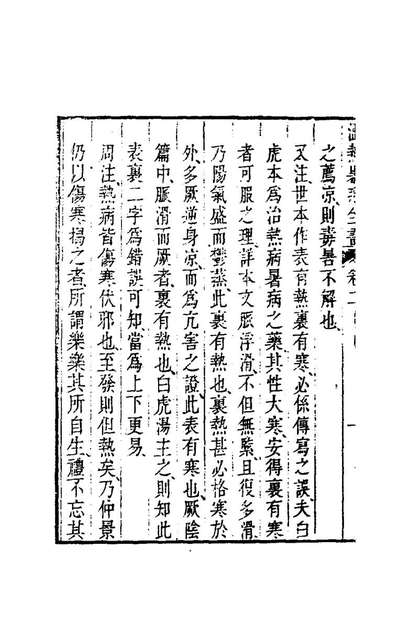 之薦凉則毒暑不解也
又注世本作表有熱裏有寒必係傳寫之誤夫白
虎本為治熱病暑病之藥其性大寒安得裏有寒
者可服之理詳本文脈浮滑不但無緊且復多滑
乃陽氣盛而鬱蒸此裏有熱也裏熱甚必格寒於
外多厥逆身凉而為亢害之證此表有寒也厥陰
篇中脈滑而厥者裏有熱也白虎湯主之則知此
表裏二字為錯誤可知當為上下更易
周注熱病皆傷寒伏邪也至發則但熱矣乃仲景
仍以傷寒揭之者所謂樂樂其所自生禮不忘其